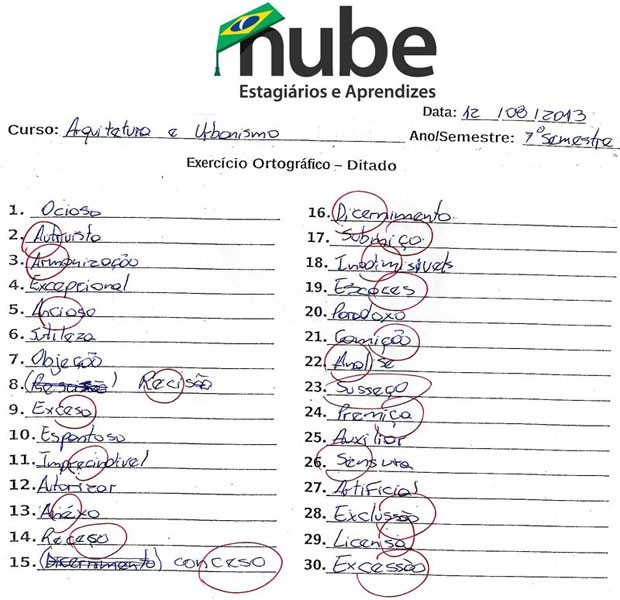 nube
Estagiários e Aprendizes
Data: 12 /08/2013
Curso: Arquitetura e Urbanismo Ano/Semestre: 7º semestre
Exercício Ortográfico – Ditado
1. Ocioso
2. Autruista
3. Armonização
4. Excepcional
5. Ancioso
6. Sutileza
7. Objeção
8. (Rescisão) Recisão
9. Exceso
10. Espantoso
11. Imprecindivel
12. Autorizar
13. Anéxo
14. Receso
15. (Dicernimento) conceso
16. Dicernimento
17. Submiço
18. Inadimisívets
19. Escoces
20. Paradoxo
21. Comição
22. Analise
23. Sussego
24. Premiça
25. Auxiliar
26. Sensura
27. Artificial
28. Exclussão
29. Licensa
30. Excessão